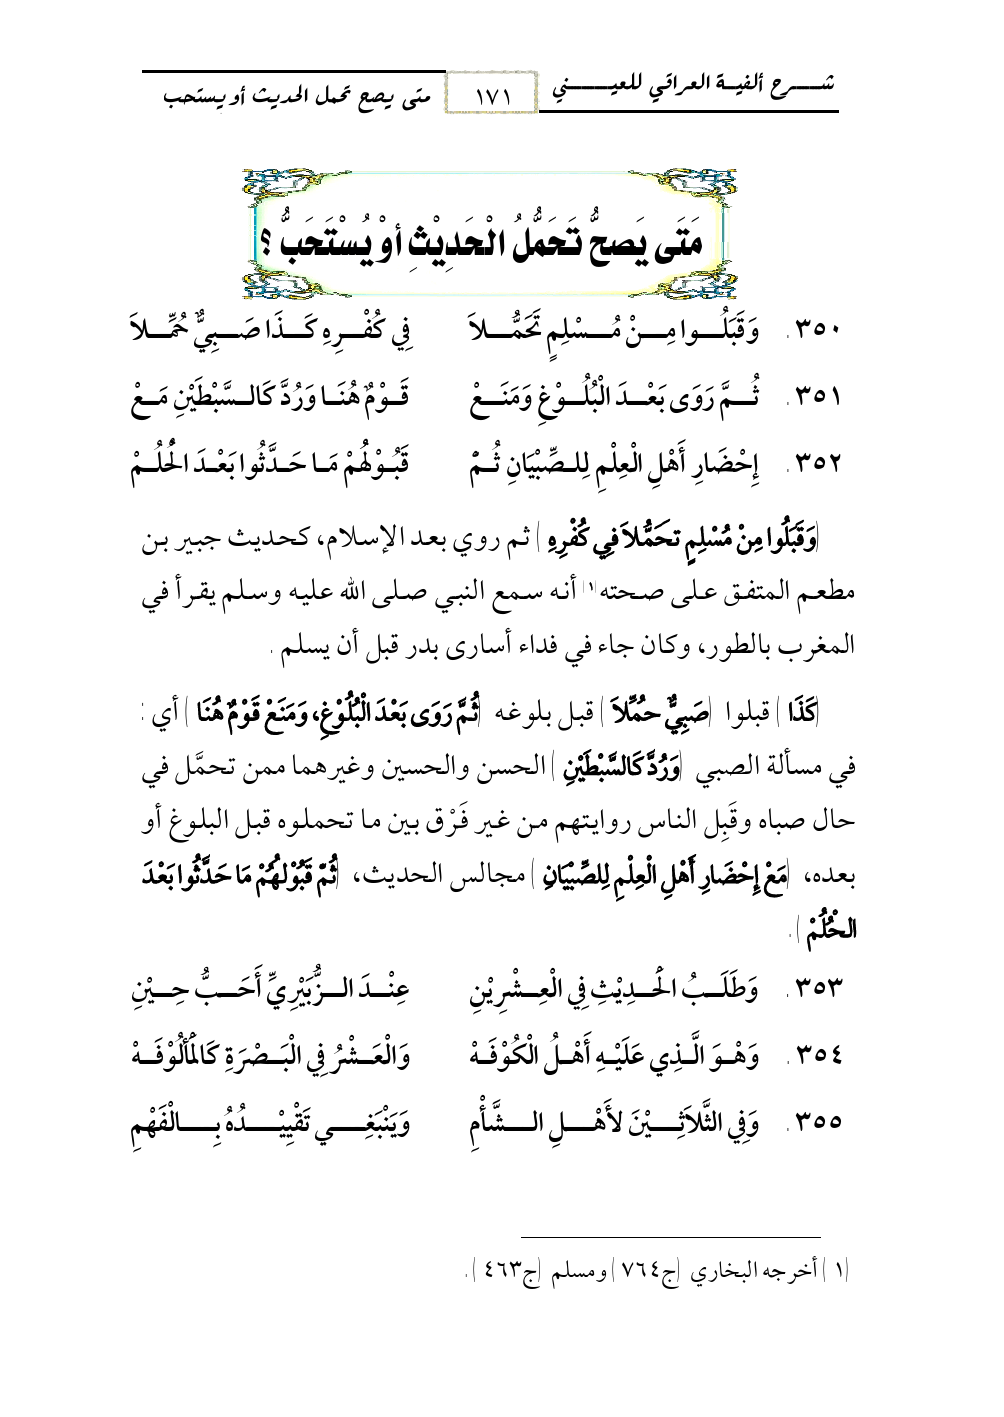 شـــرح ألفيـة العراقي للعيـــــني
١٧١
متى يصح تحمل الحديث أو يستحب
مَتَى يَصحُّ تَحَمُّلُ الْحَدِيْثِ أوْ يُسْتَحَبُّ ؟
٣٥٠. وَقَبَلُـــوا مِـــنْ مُـــسْلِمٍ تَحَمُّـــلاَ فِي كُفْـــرِهِ كَـــذَا صَـــبِيٌّ حُمِّـــلاَ
٣٥١. ثُـــمَّ رَوَى بَعْـــدَ الْبُلُـــوْغِ وَمَنَـــعْ قَـــوْمٌ هُنَـــا وَرُدَّ كَالـــسَّبْطَيْنِ مَـــعْ
٣٥٢. إِحْضَارِ أَهْلِ الْعِلْمِ لِلـــصِّبْيَانِ ثُـــمّ قَبُـــوْلُهُمْ مَـــا حَـــدَّثُوا بَعْـــدَ الْحُلُـــمْ
(وَقَبَلُوا مِنْ مُسْلِمٍ تحَمُّلاَ فِي كُفْرِهِ) ثم روي بعد الإسلام، كحديث جبير بن
مطعم المتفق على صحته(١) أنه سمع النبي صلى الله عليه وسلم يقرأ في
المغرب بالطور، وكان جاء في فداء أسارى بدر قبل أن يسلم .
(كَذَا) قبلوا (صَبِيٌّ حمُِّلاَ) قبل بلوغه (ثُمَّ رَوَى بَعْدَ الْبُلُوْغِ، وَمَنَعْ قَوْمٌ هُنَا) أي :
في مسألة الصبي (وَرُدَّ كَالسَّبْطَيْنِ) الحسن والحسين وغيرهما ممن تحمَّل في
حال صباه وقَبِل الناس روايتهم من غير فَرْق بين ما تحملوه قبل البلوغ أو
بعده، (مَعْ إِحْضَارِ أَهْلِ الْعِلْمِ لِلصِّبْيَانِ) مجالس الحديث، (ثُمّ قَبُوْلهُمْ مَا حَدَّثُوا بَعْدَ
الحْلُمْ).
٣٥٣. وَطَلَـــبُ الْحَـــدِيْثِ فِي الْعِـــشْرِيْنِ عِنْـــدَ الـــزُّبَيْرِيِّ أَحَـــبُّ حِـــيْنِ
٣٥٤. وَهْـــوَ الَّـــذِي عَلَيْـــهِ أَهْـــلُ الْكُوْفَـــهْ وَالْعَـــشْرُ فِي الْبَـــصْرَةِ كَالْمَأْلُوْفَـــهْ
٣٥٥. وَفِي الثَّلاَثِـــيْنَ لأَهْـــلِ الـــشَّأْمِ وَيَنْبَغِـــي تَقْيِيْـــدُهُ بِـــالْفَهْمِ
(١) أخرجه البخاري (ح٧٦٤) ومسلم (ح٤٦٣).